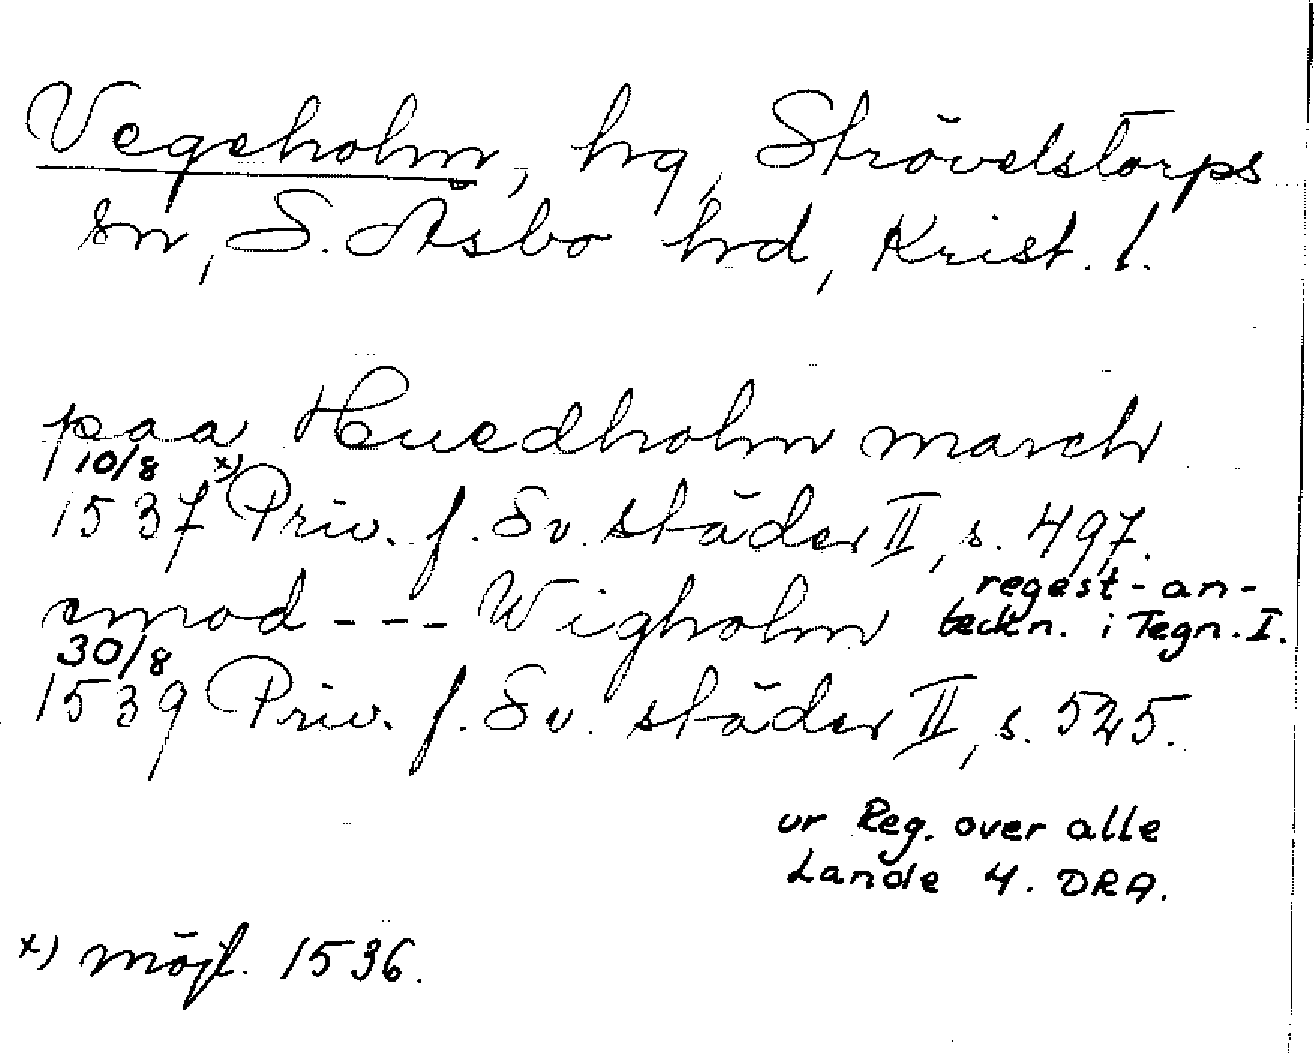 Vegeholm, hg, Strövelstorps
sn, S. Åsbo hrd, Krist. l.
paa Huedholm march
10/8 x)
1537 Priv. f. Sv. städer II, s. 497.
regest-an-
emod --- Wigholm teckn. i Tegn. I.
30/8
1539 Priv. f. Sv. städer II, s. 525.
ur Reg. over alle
Lande 4. DRA.
x) möjl. 1536.